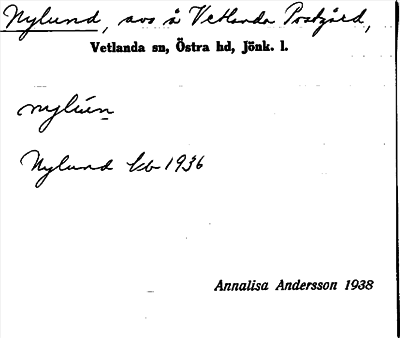 Nylund, avs å Vetlanda Prästgård,
Vetlanda sn, Östra hd, Jönk. l.
nylún
Nylund kb 1936
Annalisa Andersson 1938